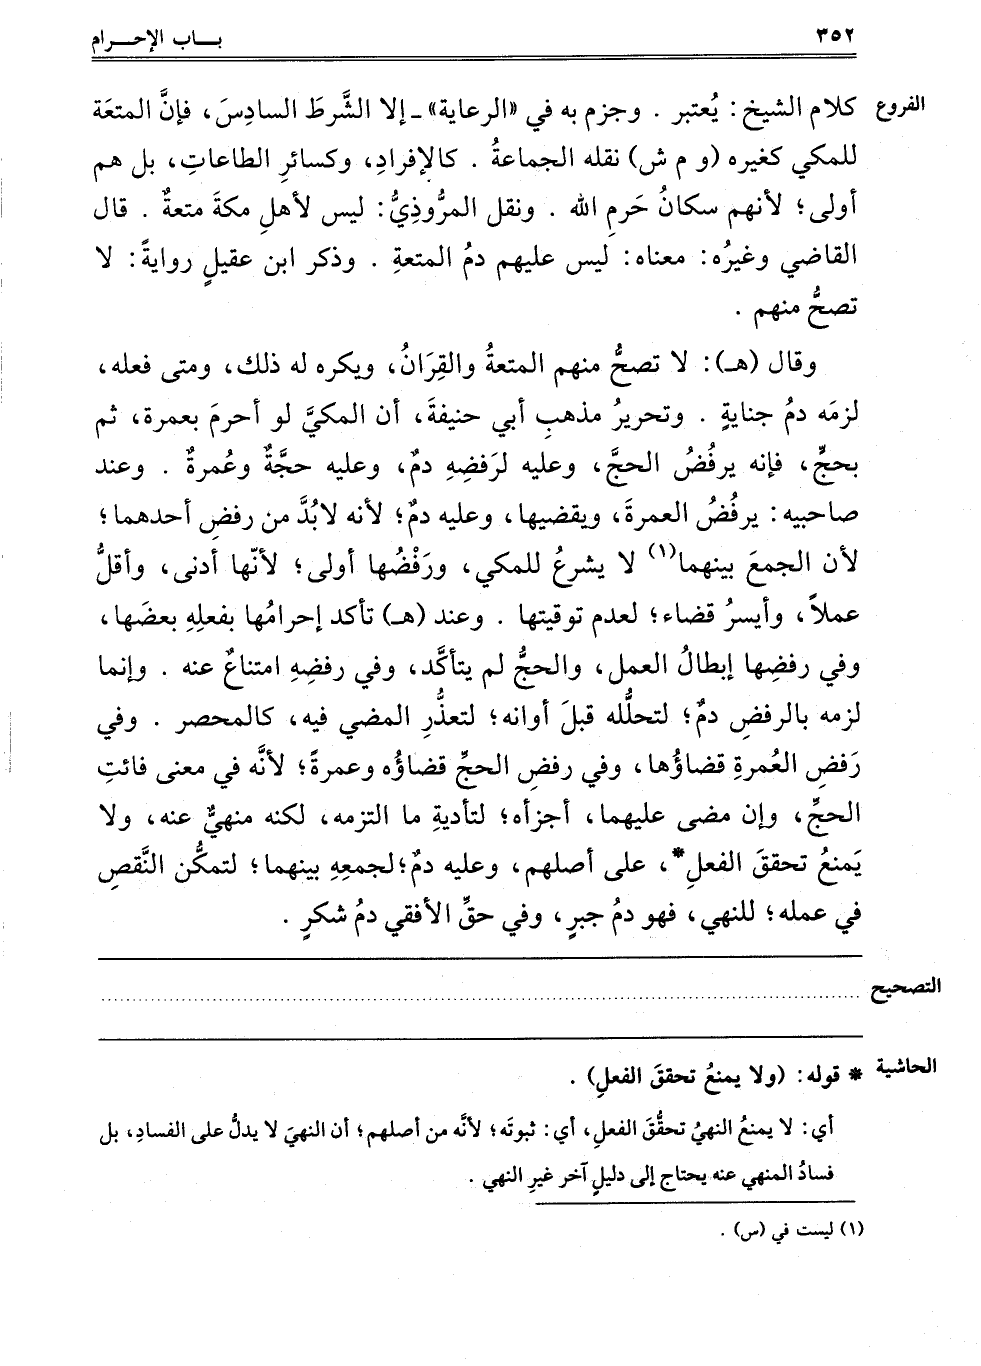 ٣٥٢
بـــاب الإحـــرام
الفروع
كلام الشيخ: يُعتبر . وجزم به في «الرعاية» ـ إلا الشَّرطَ السادِسَ، فإنَّ المتعَة
للمكي كغيره (و م ش) نقله الجماعةُ . كالإفرادِ، وكسائرِ الطاعاتِ، بل هم
أولى؛ لأنهم سكانُ حَرمِ الله . ونقل المرُّوذِيُّ: ليس لأهلِ مكةَ متعةٌ . قال
القاضي وغيرُه: معناه: ليس عليهم دمُ المتعةِ . وذكر ابن عقيلٍ روايةً: لا
تصحُّ منهم .
وقال (هـ): لا تصحُّ منهم المتعةُ والقِرَانُ، ويكره له ذلك، ومتى فعله،
لزمَه دمُ جنايةٍ . وتحريرُ مذهبِ أبي حنيفةَ، أن المكيَّ لو أحرمَ بعمرة، ثم
بحجٍّ، فإنه يرفُضُ الحجَّ، وعليه لرَفضِهِ دمٌ، وعليه حجَّةٌ وعُمرةٌ . وعند
صاحبيه: يرفُضُ العمرةَ، ويقضيها، وعليه دمٌ؛ لأنه لابُدَّ من رفضِ أحدهما؛
لأن الجمعَ بينهما(١) لا يشرعُ للمكي، ورَفْضُها أولى؛ لأنّها أدنى، وأقلُّ
عملاً، وأيسرُ قضاء؛ لعدم توقيتها . وعند (هـ) تأكد إحرامُها بفعلِهِ بعضَها،
وفي رفضِها إبطالُ العمل، والحجُّ لم يتأكَّد، وفي رفضِهِ امتناعٌ عنه . وإنما
لزمه بالرفضِ دمٌ؛ لتحلُّله قبلَ أوانه؛ لتعذُّرِ المضي فيه، كالمحصر . وفي
رَفضِ العُمرةِ قضاؤُها، وفي رفضِ الحجِّ قضاؤُه وعمرةً؛ لأنَّه في معنى فائتِ
الحجِّ، وإن مضى عليهما، أجزأه؛ لتأديةِ ما التزمه، لكنه منهيٌّ عنه، ولا
يَمنعُ تحققَ الفعلِ*، على أصلهم، وعليه دمٌ؛لجمعِهِ بينهما؛ لتمكُّن النَّقصِ
في عمله؛ للنهي، فهو دمُ جبرٍ، وفي حقِّ الأفقي دمُ شكرٍ .
التصحيح ................................
الحاشية
* قوله: (ولا يمنعُ تحققَ الفعلِ) .
أي: لا يمنعُ النهيُ تحقُّقَ الفعلِ، أي: ثبوتَه؛ لأنَّه من أصلهم؛ أن النهيَ لا يدلُّ على الفسادِ، بل
فسادُ المنهي عنه يحتاج إلى دليلٍ آخر غيرِ النهي .
(١) ليست في (س) .